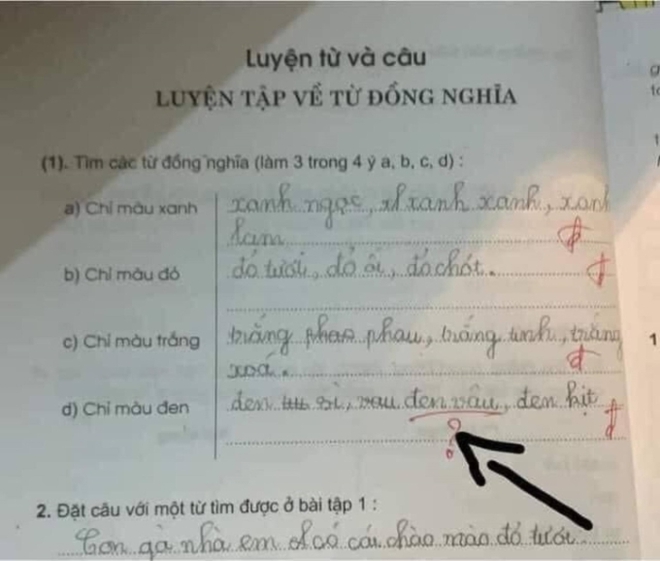 Luyện từ và câu
LUYỆN TẬP VỀ TỪ ĐỒNG NGHĨA
(1). Tìm các từ đồng nghĩa (làm 3 trong 4 ý a, b, c, d) :
a) Chỉ màu xanh xanh ngọc, xanh xanh, xanh
lam
b) Chỉ màu đỏ đỏ tươi, đỏ ối, đỏ chót.
c) Chỉ màu trắng trắng phau phau, trắng tinh, trắng
xoá.
d) Chỉ màu đen đen sì, đen vâu, đen kịt
?
2. Đặt câu với một từ tìm được ở bài tập 1 :
Con gà nhà em có cái chào mào đỏ tươi
1